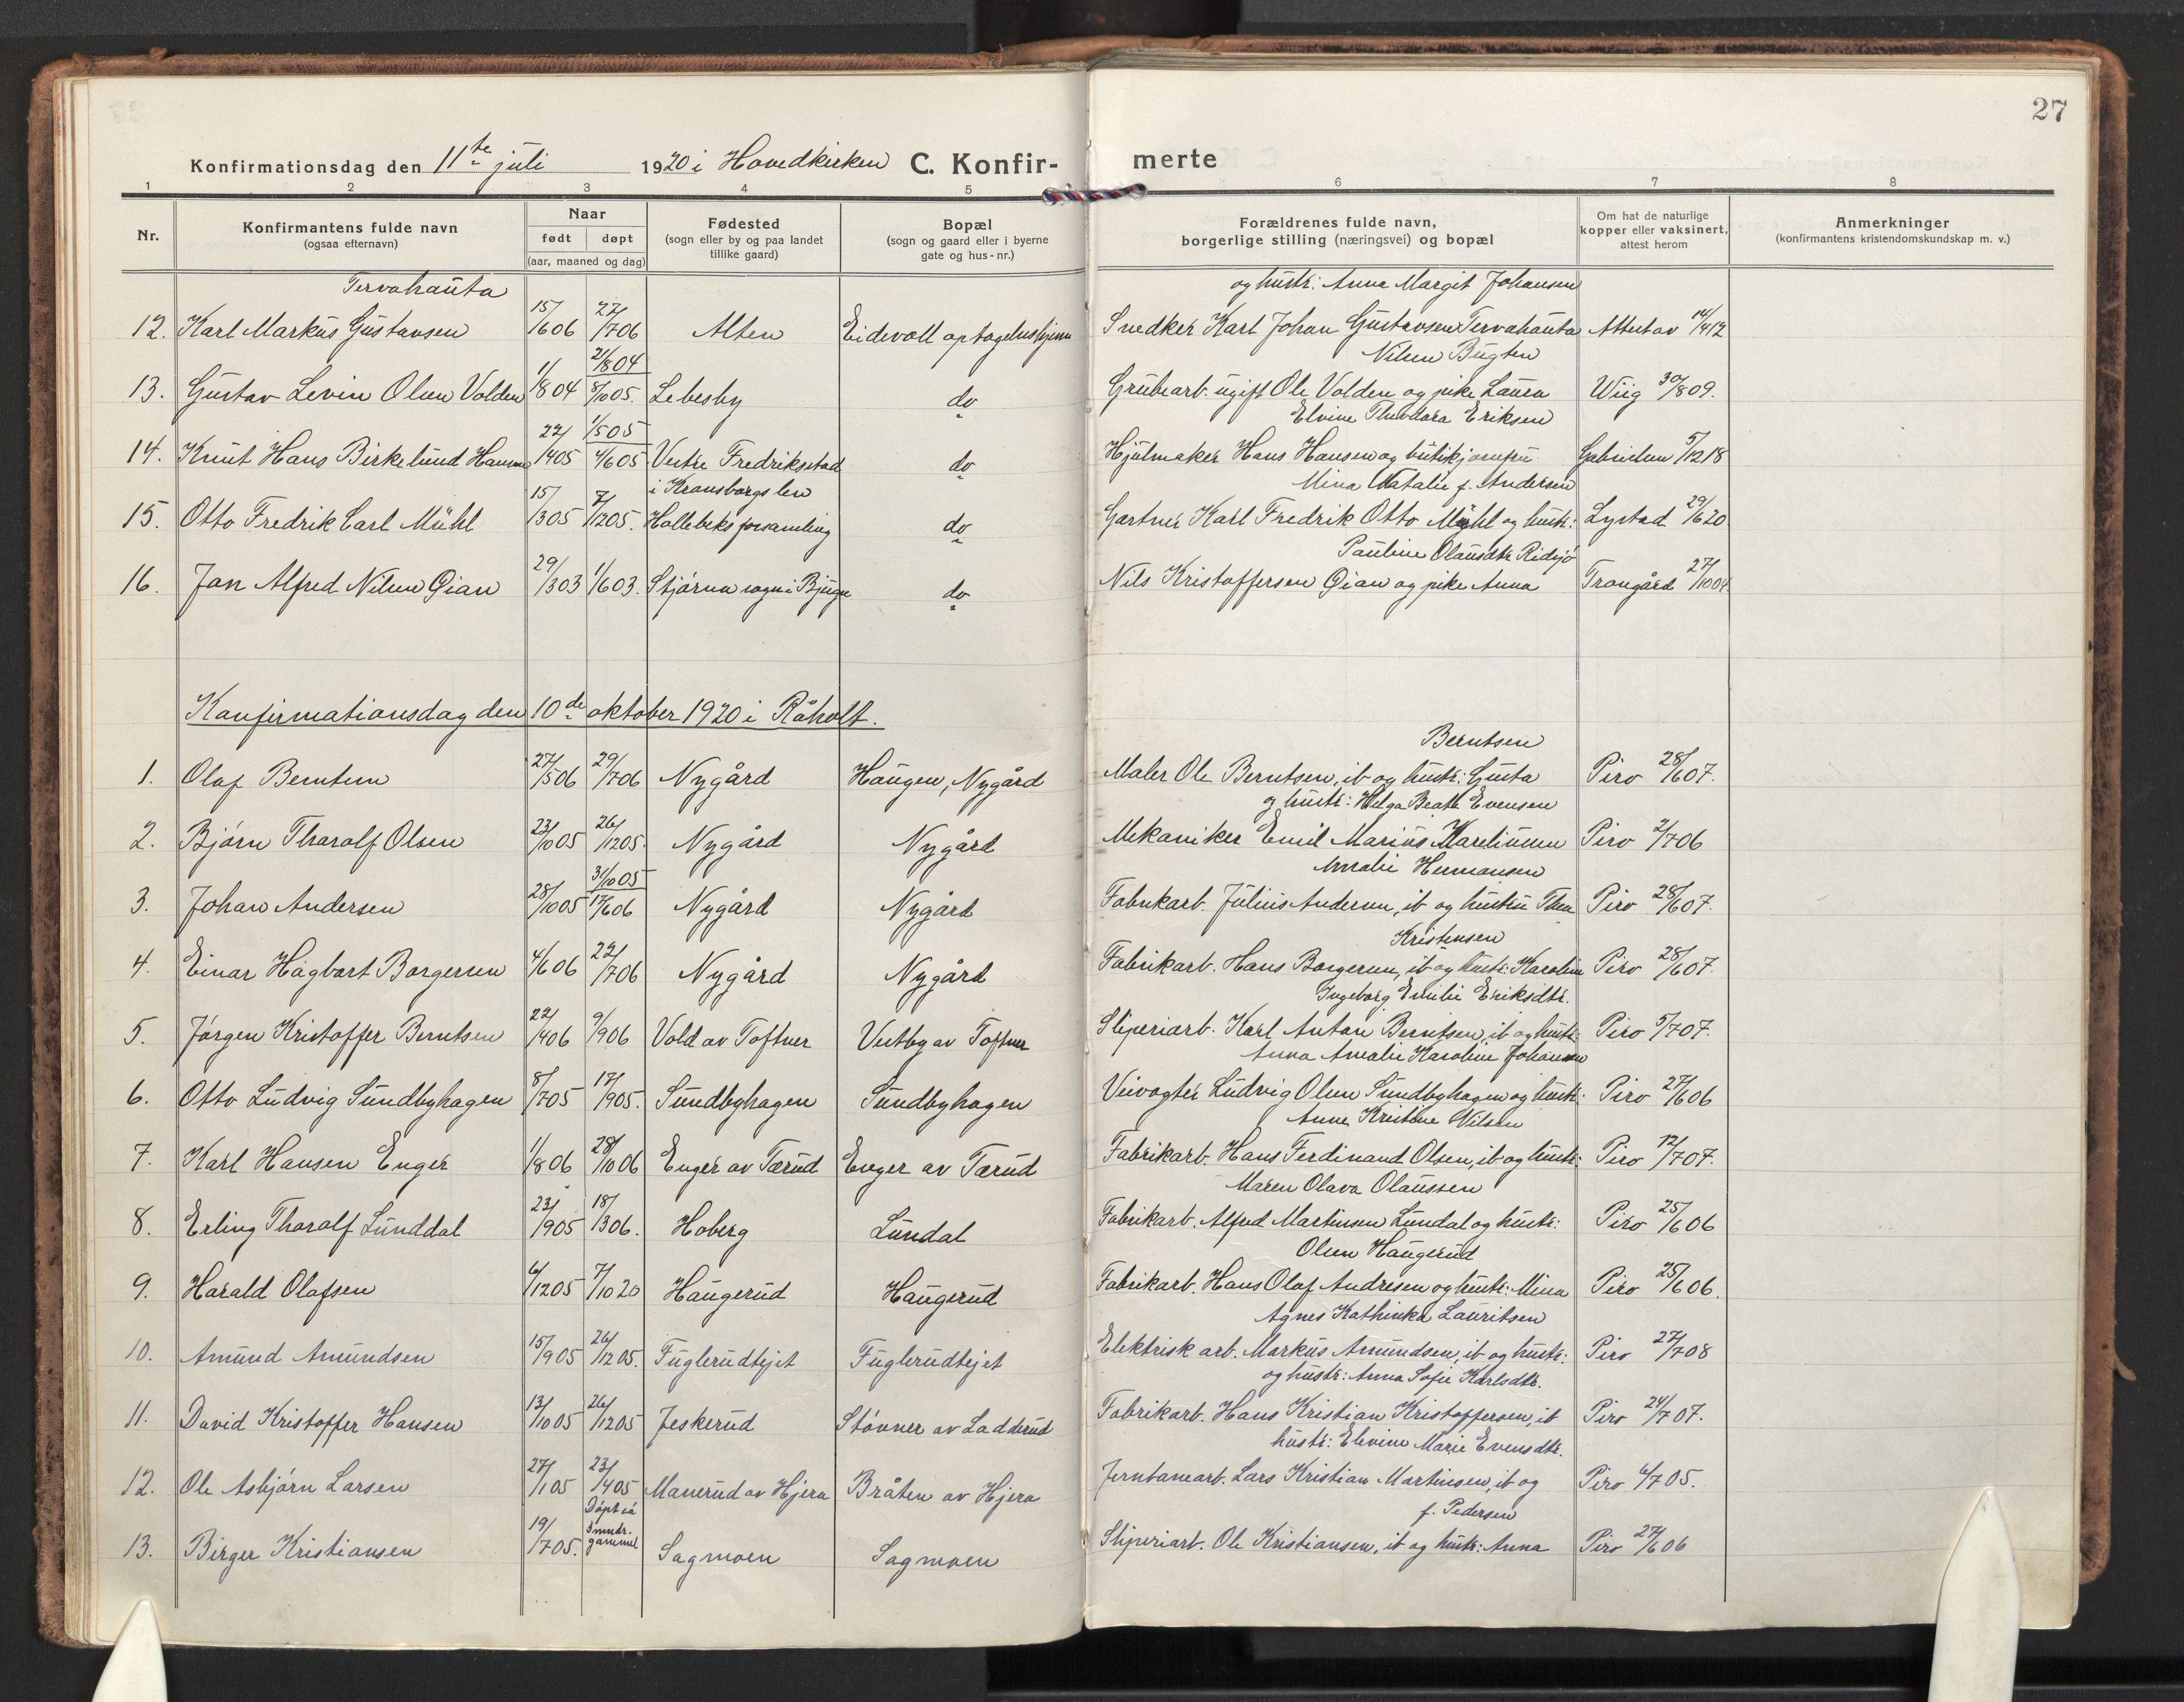 27
Konfirmationsdag den 11te juli 1920 i Hovedkirken C. Konfir-merte
1 2 3 4 5 6 7 8
Nr. Konfirmantens fulde navn (ogsaa efternavn) Naar født døpt (aar, maaned og dag) Fødested (sogn eller by og paa landet tillike gaard) Bopæl (sogn og gaard eller i byerne gate og hus-nr.) Forældrenes fulde navn, borgerlige stilling (næringsvei) og bopæl Om hat de naturlige kopper eller vaksinert, attest herom Anmerkninger (konfirmantens kristendomskundskap m. v.)
Tervahauta og hustr: Anna Margit Johansen
12. Karl Markus Gustavsen 15/606 22/706 Alten Eidsvoll optagelseshjem Snedker Karl Johan Gustavsen Tervahauta 14/412
2/804 Nilsen Bugten
13. Gustav Levin Olsen Volden 1/804 8/1005. Lebesby do Grubearb. ugift Ole Volden og pike Laura Wiig 30/809.
1/505 Elvine Theodora Eriksen
14. Knut Hans Birkelund Hansen 22/405 4/605 Vestre Fredrikstad do Hjulmaker Hans Hansen og butikjomfru Gabrielsen 5/1218
i Kronsborgs len Mina Natalie f. Andersen
15. Otto Fredrik Carl Mühl 15/305 7/1205. Hollebeks forsamling do Gartner Karl Fredrik Otto Mühl og hustr: Lystad 29/620
Pauline Olausdtr Ridsjö
16. Jon Alfred Nilsen Øian 29/303 1/603. Stjørna sogn i Bjugn do Nils Kristoffersen Øian og pike Anna Trongård 27/1004
Konfirmationsdag den 10de oktober 1920 i Råholt.
Berntsen
1. Olaf Berntsen 27/506 29/706 Nygård Haugen, Nygård Maler Ole Berntsen, ib og hustr: Gusta Piro 28/607.
og hustr: Helga Beate Evensen
2. Bjørn Tharalf Olsen 23/1005 26/1205. Nygård Nygård Mekaniker Emil Marius Kareliussen Piro 2/706
31/1005 Amalie Hermansen
3. Johan Andersen 28/1005 17/606 Nygård Nygård Fabrikarb. Julius Andersen, ib og hustru Thea Piro 28/607.
Kristensen
4. Einar Hagbart Borgersen 4/606 22/706 Nygård Nygård Fabrikarb. Hans Borgersen, ib og hustr: Karoline Piro 28/607.
Ingeborg Emilie Eriksdtr.
5. Jørgen Kristoffer Berntsen 22/406 9/906 Vold av Toftner Vestby av Toftner Sliperiarb. Karl Anton Berntsen, ib og hustr: Piro 5/707.
Anna Amalie Karoline Johansen
6. Otto Ludvig Sundbyhagen 8/705 17/905. Sundbyhagen Sundbyhagen Veivogter Ludvig Olsen Sundbyhagen og hustr: Piro 27/606
Anne Kristine Nilsen
7. Karl Hansen Enger 1/806 28/1006 Enger av Tærud Enger av Tærud Fabrikarb. Hans Ferdinand Olsen, ib og hustr: Piro 12/707.
Maren Olava Olaussen
8. Erling Tharalf Lunddal 23/905 18/306. Hoberg Lundal Fabrikarb. Alfred Martinsen Lundal og hustr: Piro 25/606
Olsen Haugerud
9. Harald Olafsen 6/1205 7/1020 Haugerud Haugerud Fabrikarb. Hans Olaf Andresen og hustr: Mina Piro 25/606.
Agnes Kathinka Lauritsen
10. Amund Amundsen 15/905 26/1205. Fuglerudejet Fuglerudejet Elektrisk arb. Markus Amundsen, ib og hustr: Piro 27/708
og hustr: Anna Sofie Karlsdtr.
11. David Kristoffer Hansen 13/1005 26/1205 Jeskerud Støvner av Ladderud Fabrikarb. Hans Kristian Kristoffersen, ib Piro 24/707.
hustr: Elevine Marie Evensdtr.
12. Ole Asbjørn Larsen 27/105 23/405 Manerud av Hjera Bråten av Hjera Jernbanearb. Lars Kristian Martinsen, ib og Piro 6/705.
Døpt ca 3 mndr. gammel f. Pedersen
13. Birger Kristiansen 19/705. Sagmoen Sagmoen Sliperiarb. Ole Kristiansen, ib og hustr: Anna Piro 27/606